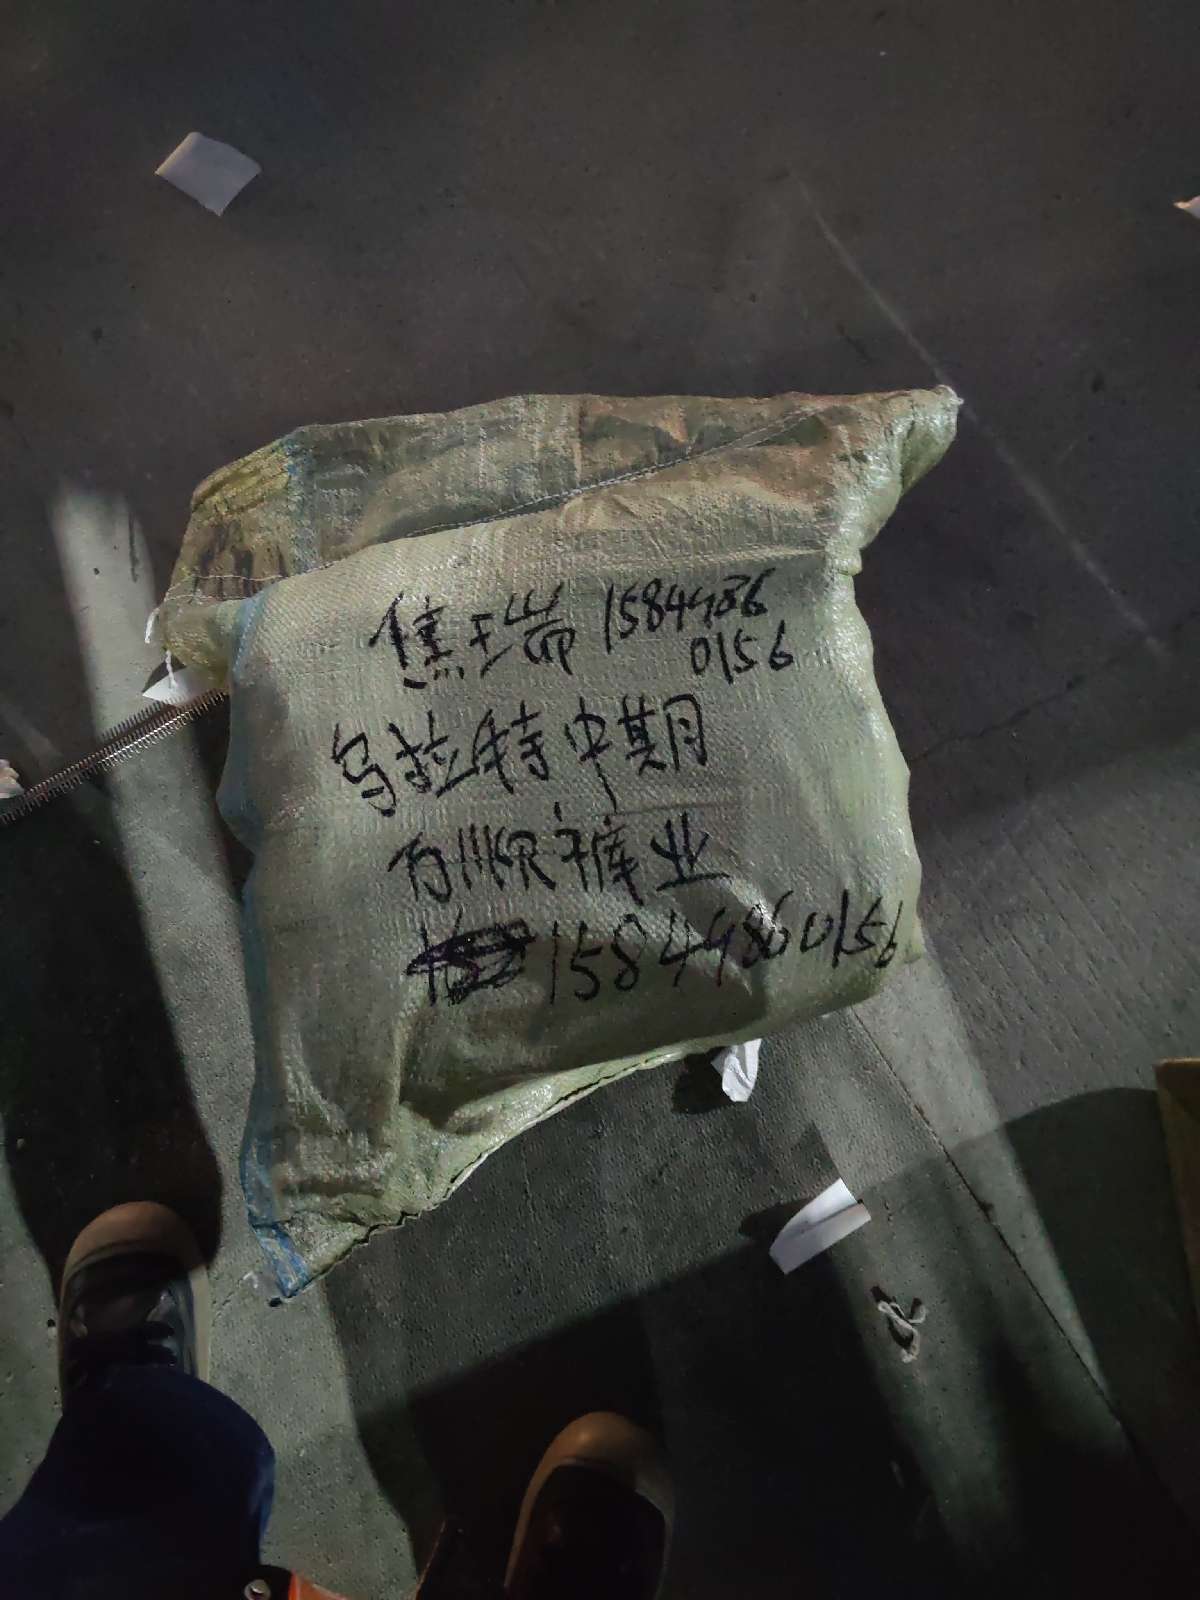 焦瑞 15849860156
乌拉特中期
百顺裤业
15849860156